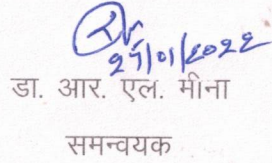 27/01/2022
डा. आर. एल. मीना
समन्वयक